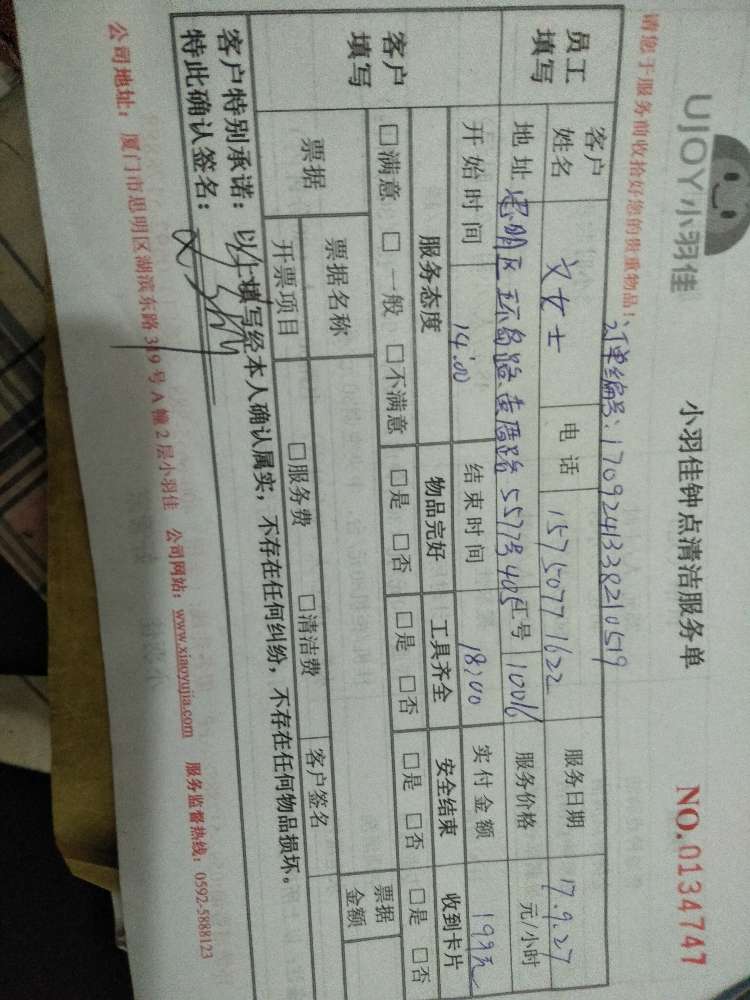 UJOY小羽佳
小羽佳钟点清洁服务单
NO.0134747
请您于服务前收拾好您的贵重物品!
订单编号:1709241338210519
员工填写
客户姓名 文女士 电话 15750771622 服务日期 17.9.27
地址 思明区环岛路 557号405 工号 10016 服务价格 元/小时
开始时间 14:00 结束时间 18:00 实付金额 199元
客户填写
服务态度 物品完好 工具齐全 安全结束 收到卡片
□满意 □一般 □不满意 □是 □否 □是 □否 □是 □否 □是 □否
票据 票据名称 票据金额
开票项目 □服务费 □清洁费 客户签名
客户特别承诺:以上填写经本人确认属实,不存在任何纠纷,不存在任何物品损坏。
特此确认签名:
公司地址:厦门市思明区湖滨东路319号A幢2层小羽佳 公司网站:www.xiaoyujia.com 服务监督热线:0592-5888123